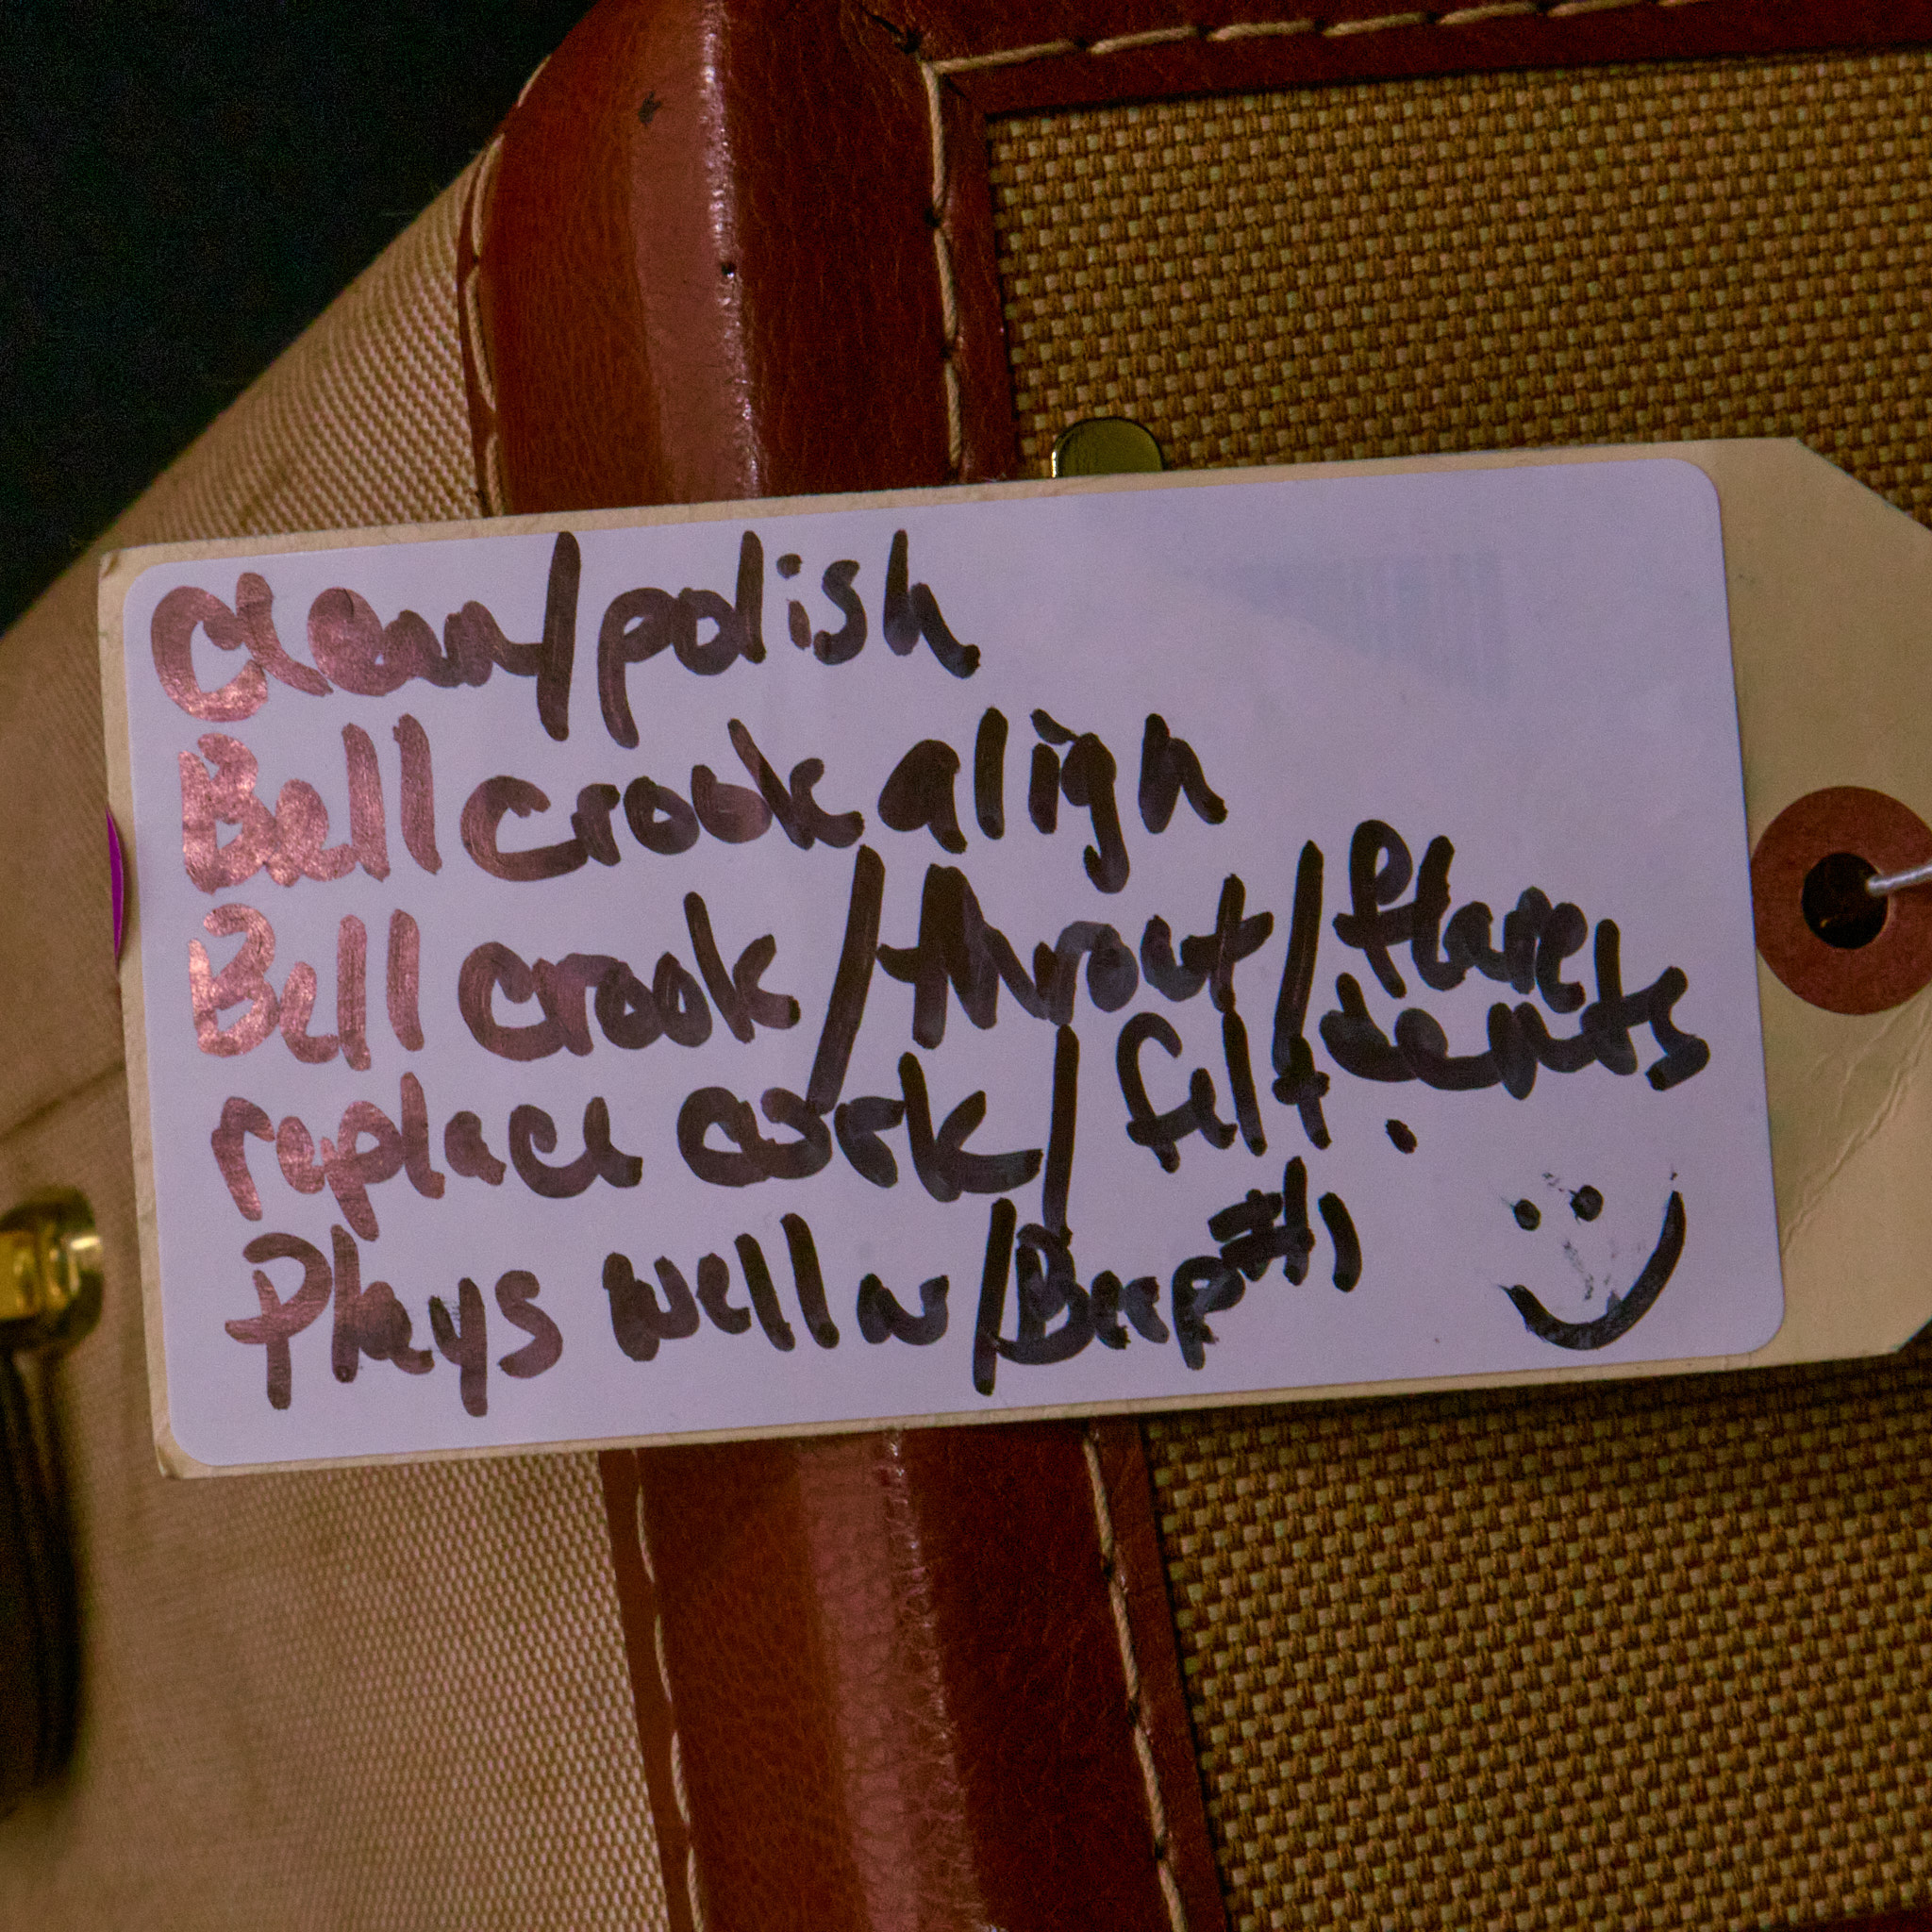 Clean/polish
Bell crook align
Bell crook/throat/flare
dents
replace cork/felt.
Plays well w/Beep #1